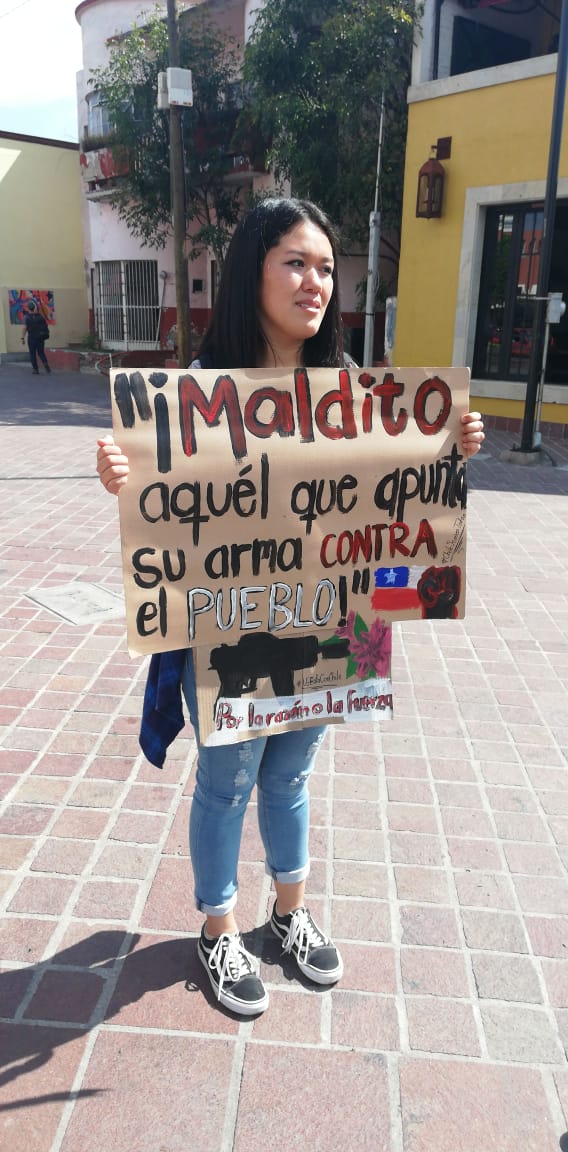 "¡Maldito
aquél que apunta
su arma CONTRA
el PUEBLO!"
Por la razón o la fuerza